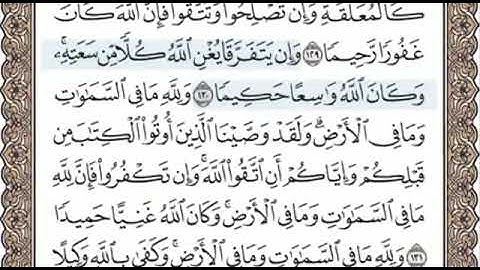 كَٱلْمُعَلَّقَةِ ۚ وَإِن تُصْلِحُوا۟ وَتَتَّقُوا۟ فَإِنَّ ٱللَّهَ كَانَ
غَفُورًا رَّحِيمًا ١٢٩ وَإِن يَتَفَرَّقَا يُغْنِ ٱللَّهُ كُلًّا مِّن سَعَتِهِۦ ۚ
وَكَانَ ٱللَّهُ وَٰسِعًا حَكِيمًا ١٣٠ وَلِلَّهِ مَا فِى ٱلسَّمَٰوَٰتِ
وَمَا فِى ٱلْأَرْضِ ۗ وَلَقَدْ وَصَّيْنَا ٱلَّذِينَ أُوتُوا۟ ٱلْكِتَٰبَ مِن
قَبْلِكُمْ وَإِيَّاكُمْ أَنِ ٱتَّقُوا۟ ٱللَّهَ ۚ وَإِن تَكْفُرُوا۟ فَإِنَّ لِلَّهِ
مَا فِى ٱلسَّمَٰوَٰتِ وَمَا فِى ٱلْأَرْضِ ۚ وَكَانَ ٱللَّهُ غَنِيًّا حَمِيدًا
١٣١ وَلِلَّهِ مَا فِى ٱلسَّمَٰوَٰتِ وَمَا فِى ٱلْأَرْضِ ۚ وَكَفَىٰ بِٱللَّهِ وَكِيلًا